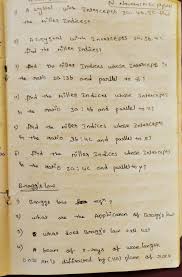 A crystal with Intercepts 2a 4b 3c find
the Miller Indices?
2) A crystal with Intercepts 2a 3b 4c
find the Miller Indices
3) find the Miller Indices whose Intercepts is
the ratio 2a:3b and parallel to z?
4) find the Miller Indices whose Intercepts
in the ratio : 4b and parallel to
5) find the Miller Indices whose Intercepts
in the ratio 3b:4c and parallel to x?
6) find the Miller Indices whose Intercepts
in the ratio 2a:4c and parallel to y?
Bragg's law
1) Braggs law
2) what are the Application of Bragg's law
3) what does Bragg's law tell us?
4) A beam of X-rays of wave length
is diffracted by plane of